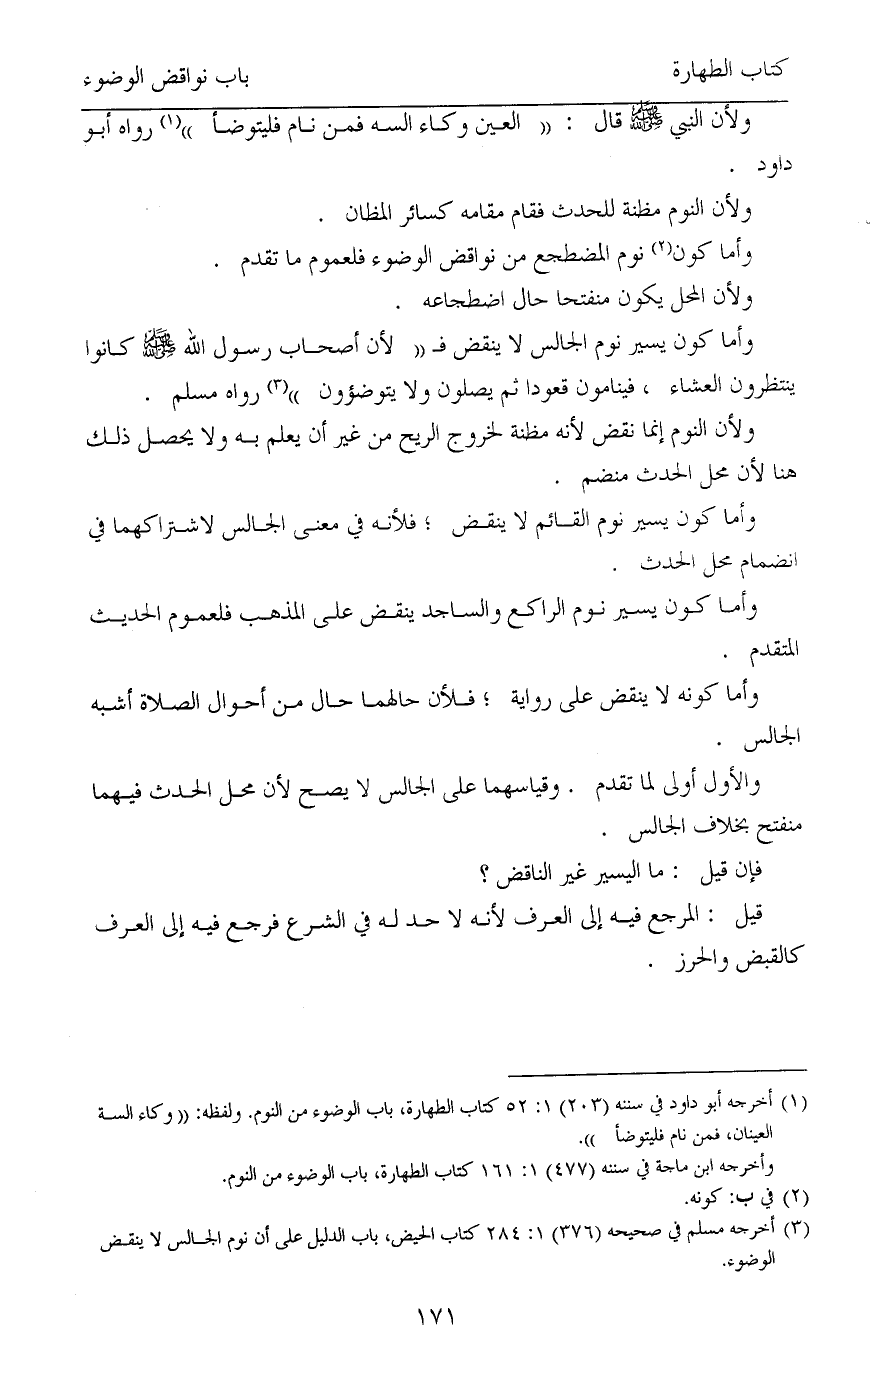 كتاب الطهارة
باب نواقض الوضوء
ولأن النبي ﷺ قال : (( العين وكاء السه فمن نام فليتوضأ ))(١) رواه أبو
داود .
ولأن النوم مظنة للحدث فقام مقامه كسائر المظان .
وأما كون(٢) نوم المضطجع من نواقض الوضوء فلعموم ما تقدم .
ولأن المحل يكون منفتحا حال اضطجاعه .
وأما كون يسير نوم الجالس لا ينقض فـ (( لأن أصحاب رسول الله ﷺ كانوا
ينتظرون العشاء ، فينامون قعودا ثم يصلون ولا يتوضؤون ))(٣) رواه مسلم .
ولأن النوم إنما نقض لأنه مظنة لخروج الريح من غير أن يعلم به ولا يحصل ذلك
هنا لأن محل الحدث منضم .
وأما كون يسير نوم القائم لا ينقض ؛ فلأنه في معنى الجالس لاشتراكهما في
انضمام محل الحدث .
وأما كون يسير نوم الراكع والساجد ينقض على المذهب فلعموم الحديث
المتقدم .
وأما كونه لا ينقض على رواية ؛ فلأن حالهما حال من أحوال الصلاة أشبه
الجالس .
والأول أولى لما تقدم . وقياسهما على الجالس لا يصح لأن محل الحدث فيهما
منفتح بخلاف الجالس .
فإن قيل : ما اليسير غير الناقض ؟
قيل : المرجع فيه إلى العرف لأنه لا حد له في الشرع فرجع فيه إلى العرف
كالقبض والحرز .
(١) أخرجه أبو داود في سننه (٢٠٣) ١: ٥٢ كتاب الطهارة، باب الوضوء من النوم. ولفظه: (( وكاء السة
العينان، فمن نام فليتوضأ )).
وأخرجه ابن ماجة في سننه (٤٧٧) ١: ١٦١ كتاب الطهارة، باب الوضوء من النوم.
(٢) في ب: كونه.
(٣) أخرجه مسلم في صحيحه (٣٧٦) ١: ٢٨٤ كتاب الحيض، باب الدليل على أن نوم الجالس لا ينقض
الوضوء.
١٧١